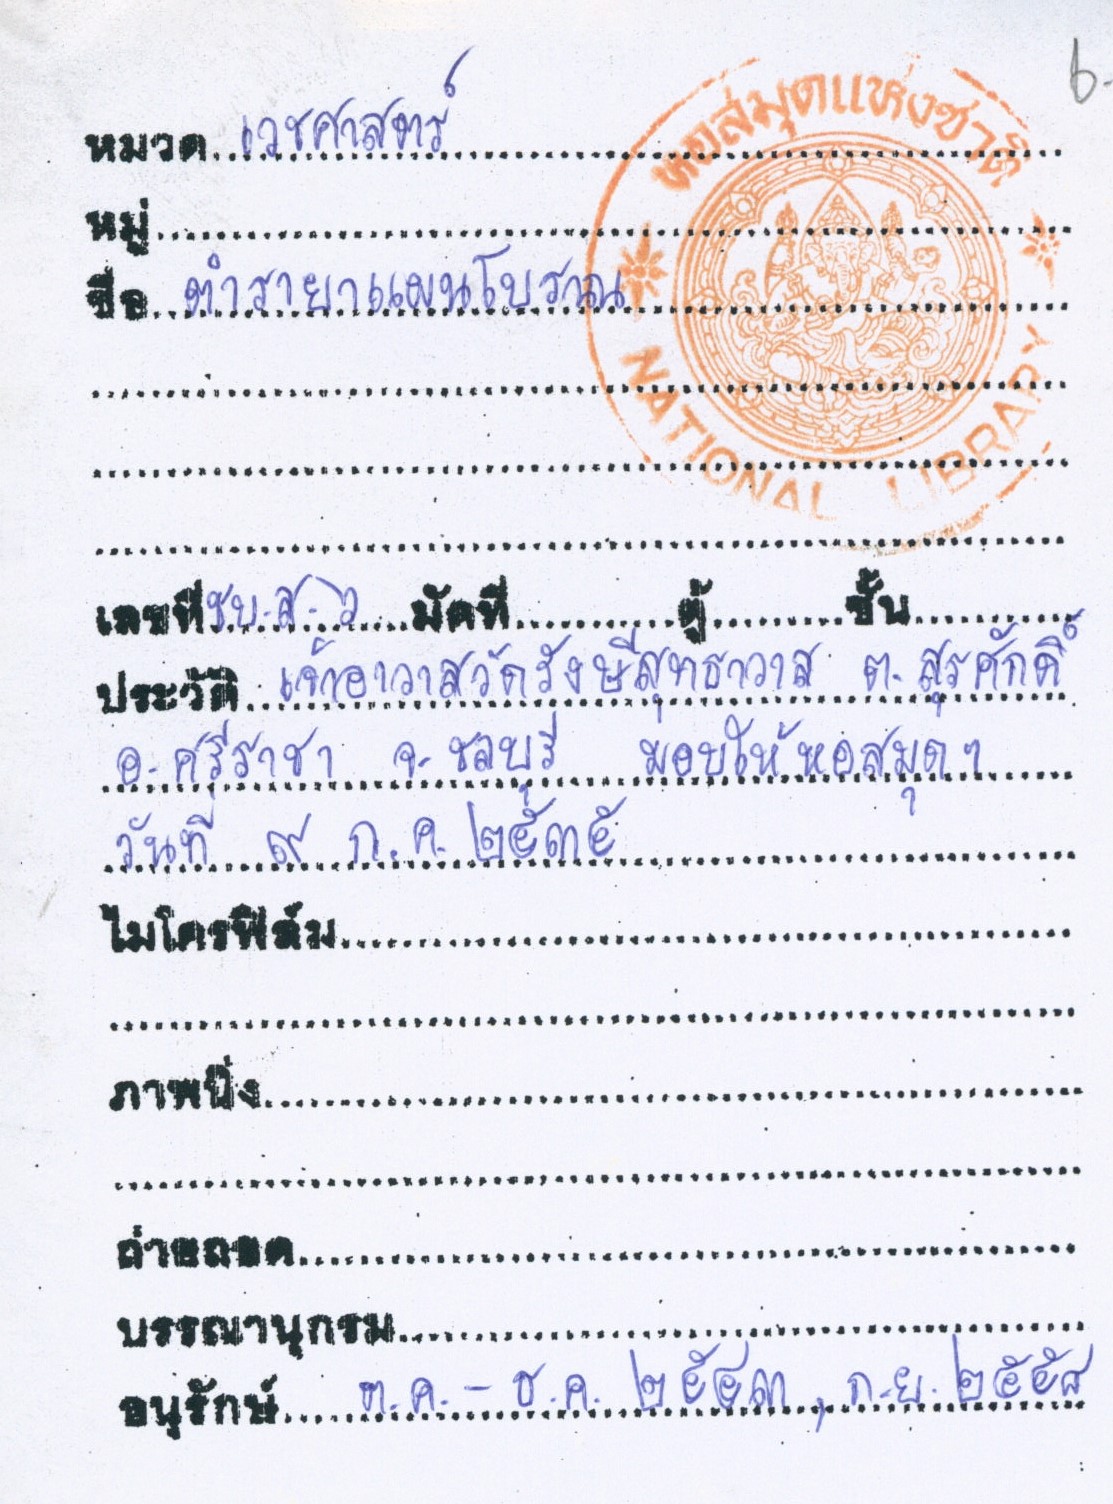 ๖-
หอสมุดแห่งชาติ
หมวด เวชศาสตร์
หมู่
ชื่อ ตำรายาแผนโบราณ
NATIONAL LIBRARY
เลขที่ ชบ.ส. ๖ มัดที่ ตู้ ชั้น
ประวัติ เจ้าอาวาสวัดรังษีสุทธาวาส ต. สุรศักดิ์
อ. ศรีราชา จ. ชลบุรี มอบให้หอสมุดฯ
วันที่ ๙ ก.ค. ๒๕๓๕
ไมโครฟิล์ม
ภาพนิ่ง
ถ่ายถอด
บรรณานุกรม
อนุรักษ์ ต.ค. - ธ.ค. ๒๕๔๓, ก.ย. ๒๕๕๘